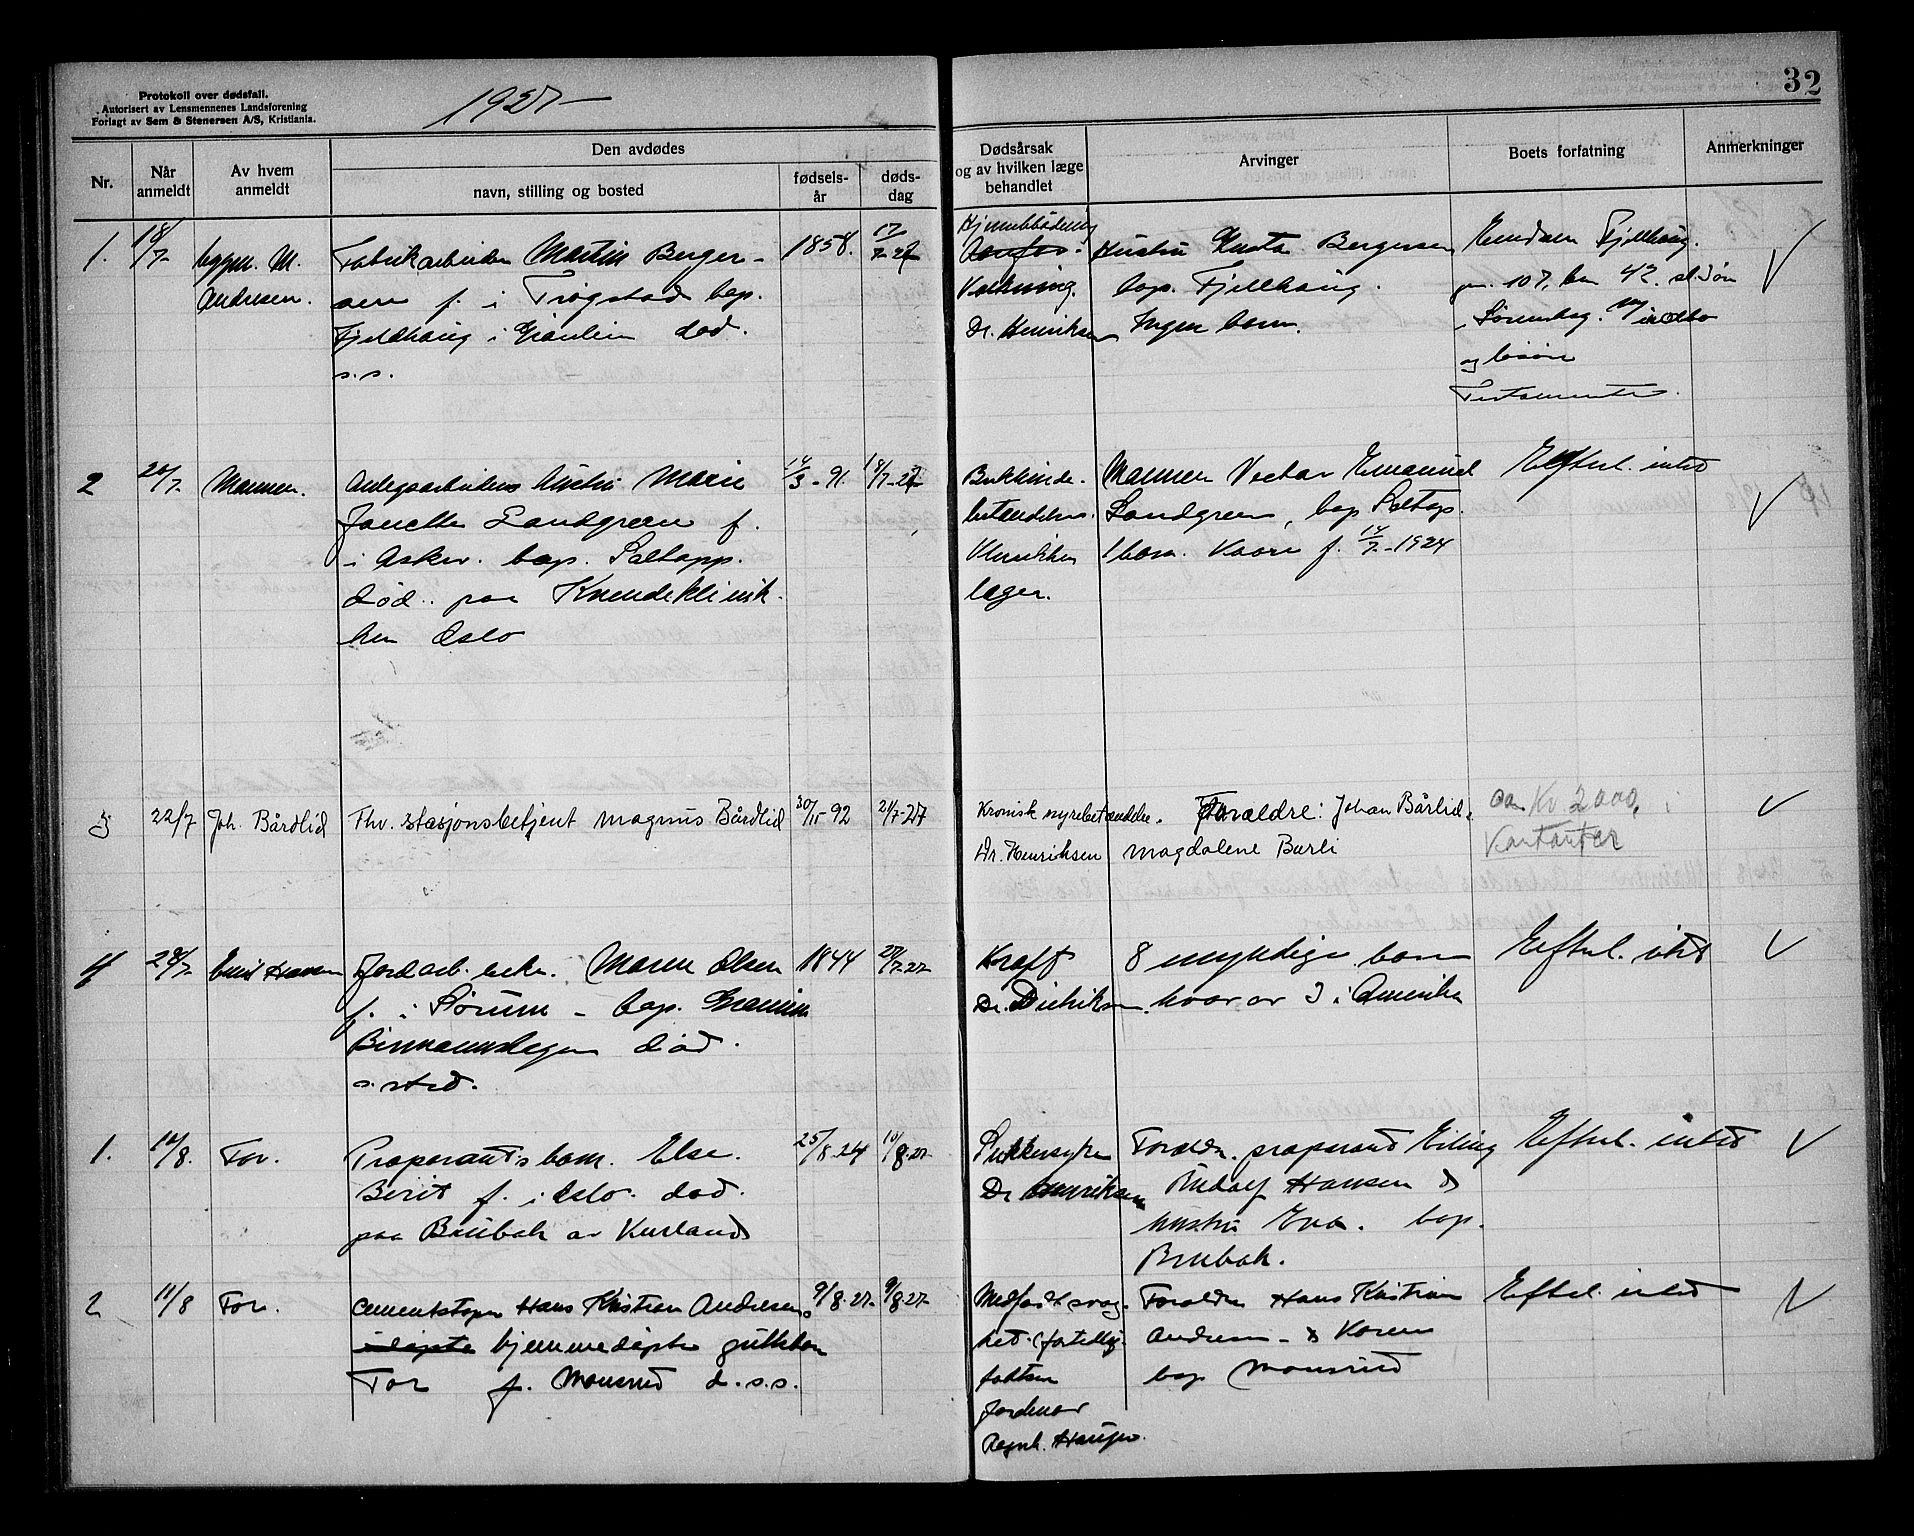 Protokoll over dødsfall.
Autorisert av Lensmennenes Landsforening
Forlagt av Sem & Stenersen A/S, Kristiania.
1927
32
Nr.
Når anmeldt
Av hvem anmeldt
Den avdødes
navn, stilling og bosted
fødselsår
dødsdag
Dødsårsak og av hvilken læge behandlet
Arvinger
Boets forfatning
Anmerkninger
1.
18/7-
M.
Andresen.
Fabrikarbeider Martin Berger-
sen f. i Trøgstad bop.
Fjeldhaug i død.
s.s.
1858.
17/7-27
Dr. Henriksen
Hustru Bergersen
bop. Fjellhaug.
Ingen barn.
Eiendom Fjellhaug.
gn. 107, bn 42
og løsøre
2
20/7-
Mannen.
Anlegsarbeiders hustru Marie
Janette Landgreen f.
i Asker. bop.
død paa Kvindeklinik-
ken Oslo
14/3-91.
18/7-27
læger.
Mannen Emanuel
Landgreen, bop
1 barn. Kaare f. 14/7-1924
Efterl. intet
3
22/7
Joh. Bårdlid
Fhv. stasjonsbetjent Magnus Bårdlid
92
21/7-27
Kronisk nyrebetændelse.
Dr. Henriksen
Forældre: Johan Bårlid
Magdalene Burli
ca Kr 2000, i
Kontanter
4
Emil Hansen
Jordarb. enke. Maren Olsen
f. i Sørum - bop.
død.
s. sted.
1844
Kræft
Dr.
8 myndige barn
hvorav 3 i Amerika
Efterl. intet
1.
10/8.
Far.
Præparants barn. Else
Berit f. i Oslo. død.
paa av Kurland
25/8.24
10/8.27
Sukkersyke
Dr Henriksen
Foreldr. præparand Eiling
Rudolf Hansen &
hustru Eva. bop.
Brubak.
Efterl. intet
2
11/8
Far.
Cementstøper Hans Kristian Andresens
hjemmedøpte guttebarn
Tor f. Monsrud d. s.s.
9/8.27-
9/8.27-
Medfødt svag-
het (fortidlig
født
Jordmor
Ragnh. Haugen.
Foreldre Hans Kristian
Andresen - & Karen
bop Monsrud
Efterl. intet